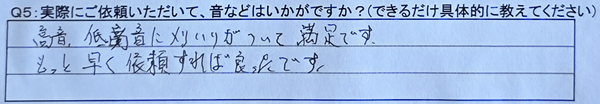 Q5:実際にご依頼いただいて、音などはいかがですか?(できるだけ具体的に教えてください)
高音、低音にメリハリがついて満足です。
もっと早く依頼すれば良かったです。